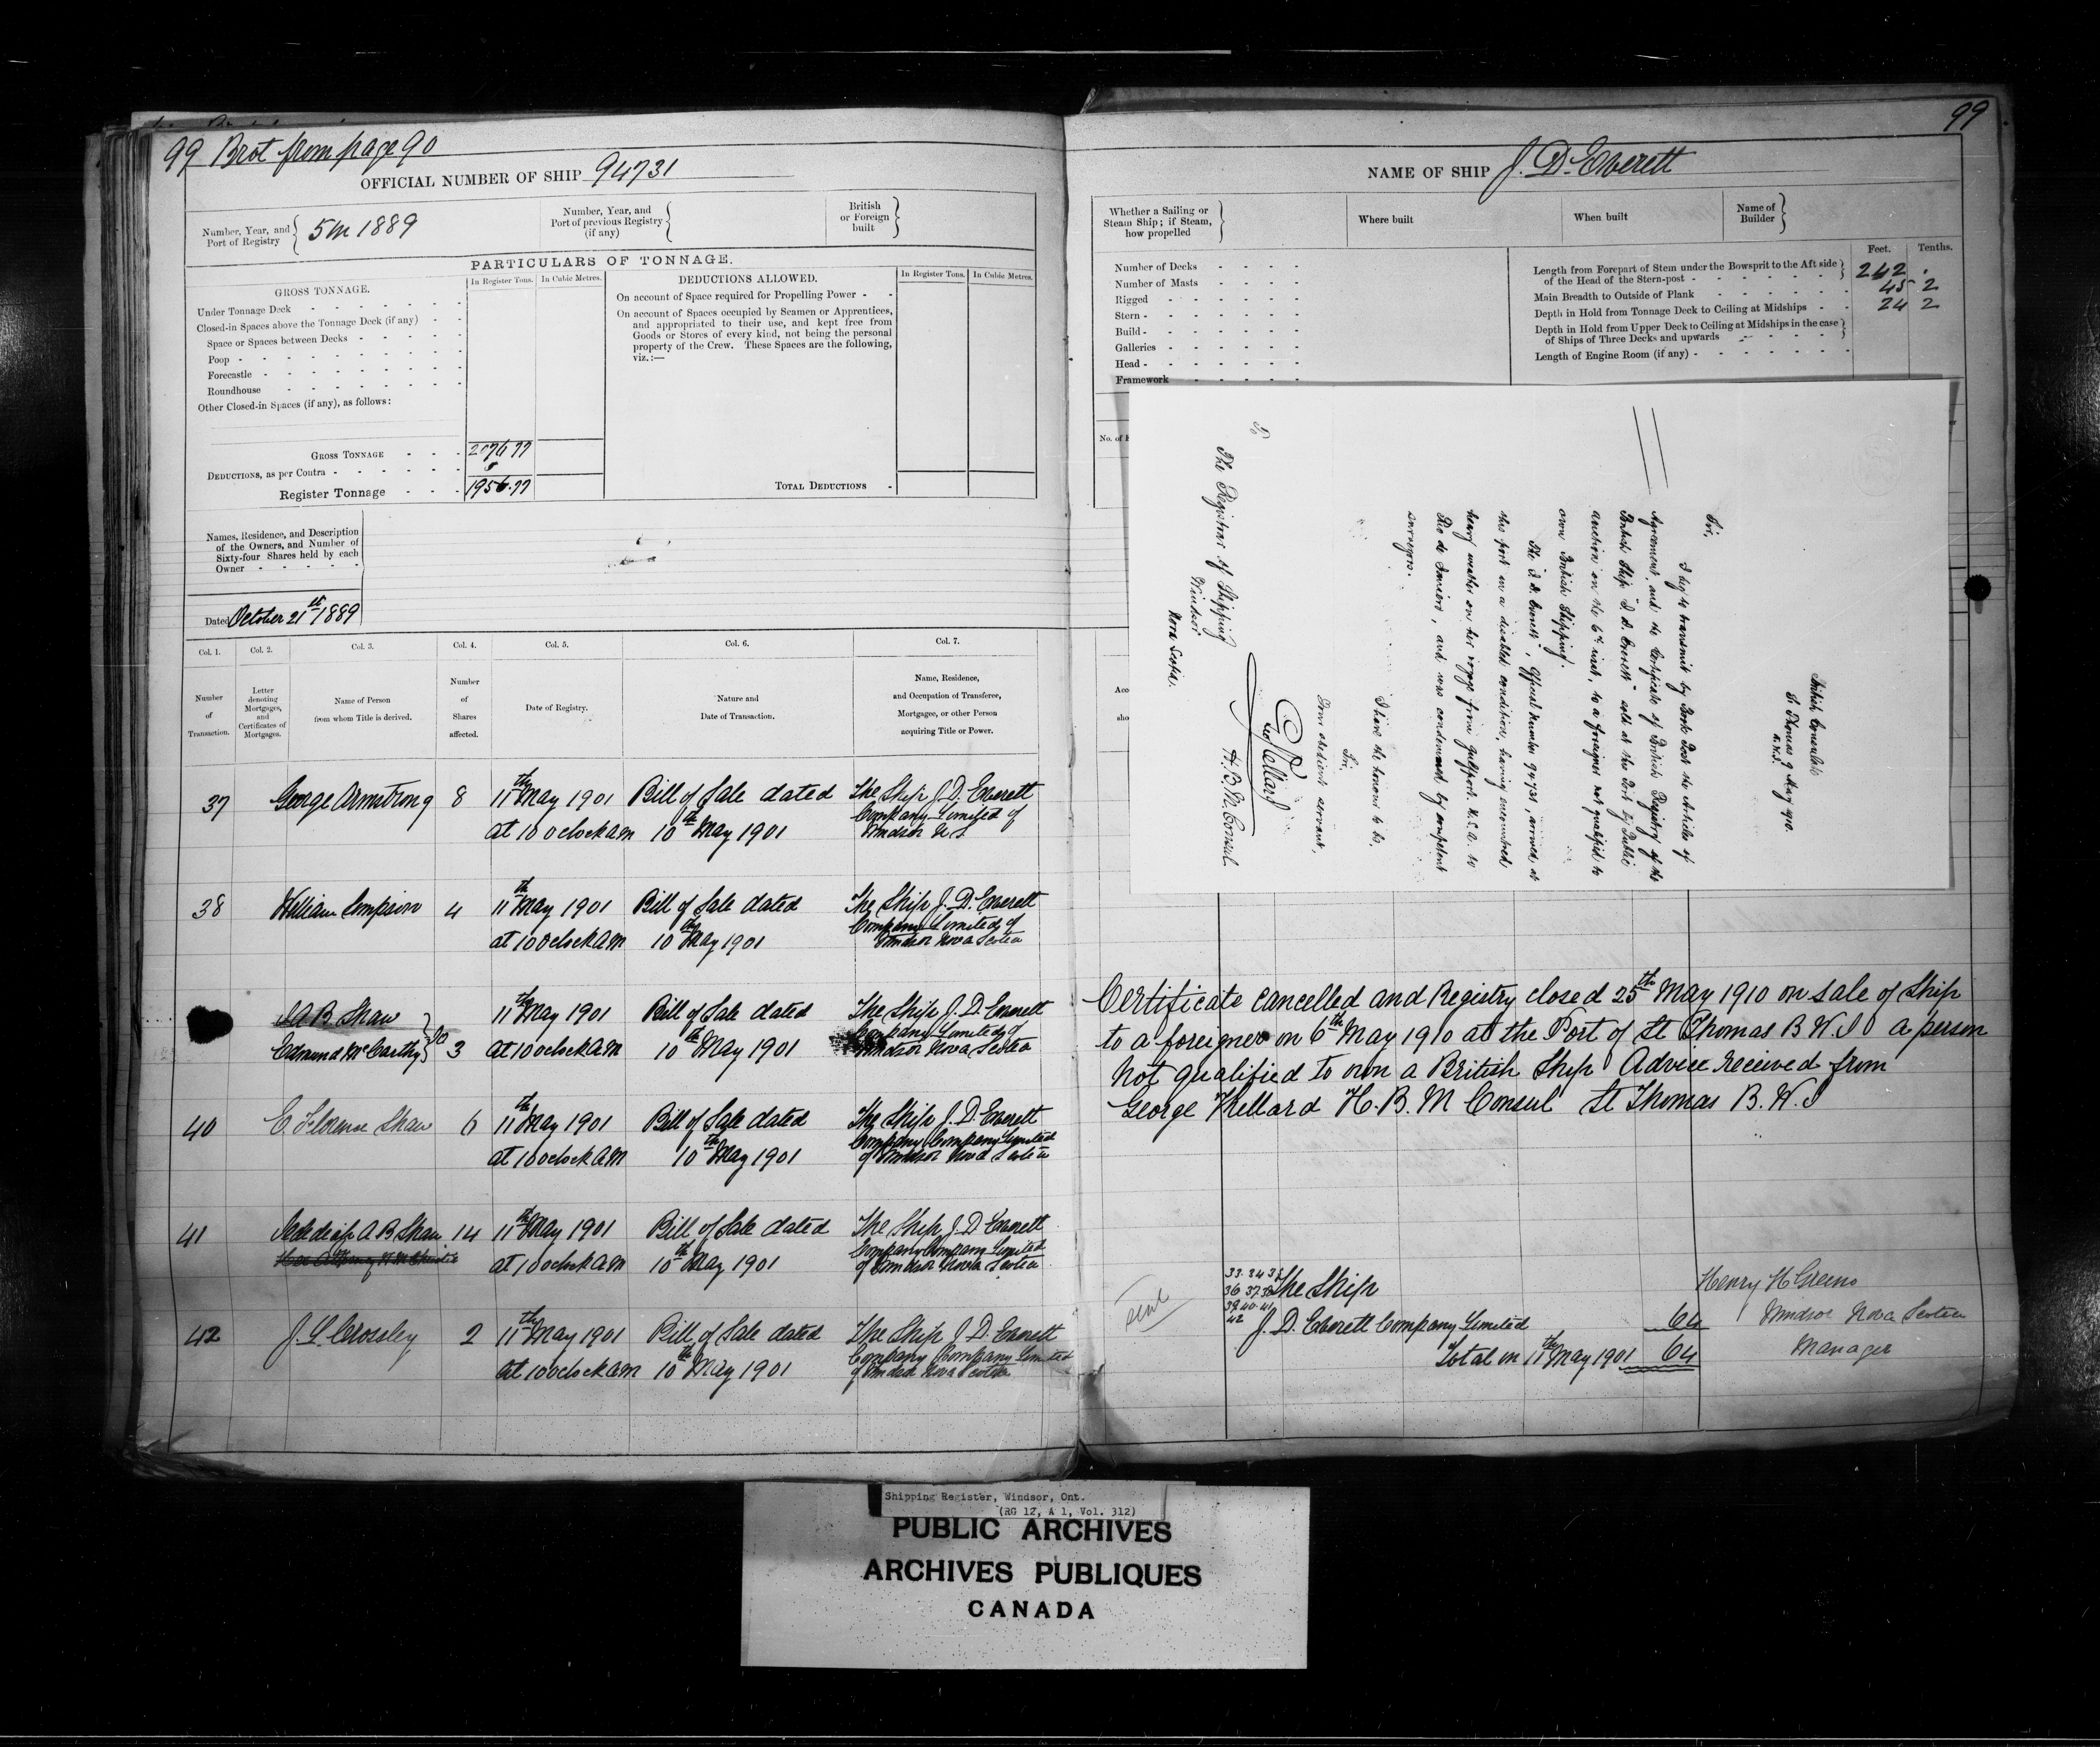 99 Brot from page 90
OFFICIAL NUMBER OF SHIP 94731
Number, Year, and Port of Registry
5 in 1889
Number, Year, and Port of previous Registry (if any)
British or Foreign built
PARTICULARS OF TONNAGE.
GROSS TONNAGE.
In Register Tons.
In Cubic Metres.
Under Tonnage Deck
Closed-in Spaces above the Tonnage Deck (if any)
Space or Spaces between Decks
Poop
Forecastle
Roundhouse
Other Closed-in Spaces (if any), as follows:
GROSS TONNAGE 2076.77
DEDUCTIONS, as per Contra
Register Tonnage 1956.77
DEDUCTIONS ALLOWED.
In Register Tons.
In Cubic Metres.
On account of Space required for Propelling Power
On account of Spaces occupied by Seamen or Apprentices,
and appropriated to their use, and kept free from
Goods or Stores of every kind, not being the personal
property of the Crew. These Spaces are the following,
viz.:—
TOTAL DEDUCTIONS
Names, Residence, and Description
of the Owners, and Number of
Sixty-four Shares held by each
Owner
Dated October 21st 1889
Col. 1.
Number
of
Transaction.
Col. 2.
Letter
denoting
Mortgages,
and
Certificates of
Mortgages.
Col. 3.
Name of Person
from whom Title is derived.
Col. 4.
Number
of
Shares
affected.
Col. 5.
Date of Registry.
Col. 6.
Nature and
Date of Transaction.
Col. 7.
Name, Residence,
and Occupation of Transferee,
Mortgagee, or other Person
acquiring Title or Power.
37 George Armstrong 8 11th May 1901 Bill of Sale dated The Ship J. D. Everett
Company Limited of
at 10 oclock am 10th May 1901 Windsor N.S
38 William Simpson 4 11th May 1901 Bill of Sale dated The Ship J. D. Everett
Company Limited of
at 10 oclock AM 10th May 1901 Windsor Nova Scotia
A B Shaw 11th May 1901 Bill of Sale dated The Ship J. D. Everett
Company Limited of
Edmund McCarthy 3 at 10 oclock AM 10th May 1901 Windsor Nova Scotia
40 E. Florence Shaw 6 11th May 1901 Bill of Sale dated The Ship J. D. Everett
Company Company Limited
at 10 oclock AM 10th May 1901 of Windsor Nova Scotia
41 A B Shaw 14 11th May 1901 Bill of Sale dated The Ship J. D. Everett
Company Company Limited
at 10 oclock AM 10th May 1901 of Windsor Nova Scotia
42 J. L. Crossley 2 11th May 1901 Bill of Sale dated The Ship J. D. Everett
Company Company Limited
at 10 oclock am 10th May 1901 of Windsor Nova Scotia
99
NAME OF SHIP J. D. Everett
Whether a Sailing or
Steam Ship; if Steam,
how propelled
Where built
When built
Name of Builder
Number of Decks
Number of Masts
Rigged
Stern
Build
Galleries
Head
Framework
Feet. Tenths.
Length from Forepart of Stem under the Bowsprit to the Aft side
of the Head of the Stern-post 242 .
Main Breadth to Outside of Plank 45 2
Depth in Hold from Tonnage Deck to Ceiling at Midships 24 2
Depth in Hold from Upper Deck to Ceiling at Midships in the case
of Ships of Three Decks and upwards
Length of Engine Room (if any)
No. of
Acco
sho
British Consulate
St Thomas 9 May 1910.
Sir,
I beg to transmit by Book Post the Articles of
Agreement and the Certificate of British Registry of the
British Ship "J. D. Everett" sold at this Port by Public
auction on the 6th inst, to a foreigner not qualified to
own British Shipping.
The J. D. Everett, Official Number 94731, arrived at
this port in a disabled condition, having encountered
heavy weather on her voyage from Gulfport. U.S.A. to
Rio de Janeiro, and was condemned by competent
surveyors.
I have the honour to be,
Sir,
Your obedient servant,
Geo Kellard
H. B. M. Consul
To
The Registrar of Shipping
Windsor
Nova Scotia.
Certificate cancelled and Registry closed 25th May 1910 on sale of Ship
to a foreigner on 6th May 1910 at the Port of St Thomas B W.I a person
not qualified to own a British Ship Advice received from
George Kellard H. B. M Consul St Thomas B. W. I
33. 34 35
36 37 38
39 40 41
42
The Ship
J. D. Everett Company Limited 64
Total on 11th May 1901 64
Henry H Greeno
Windsor Nova Scotia
Manager
Shipping Register, Windsor, Ont.
(RG 12, A 1, Vol. 312)
PUBLIC ARCHIVES
ARCHIVES PUBLIQUES
CANADA